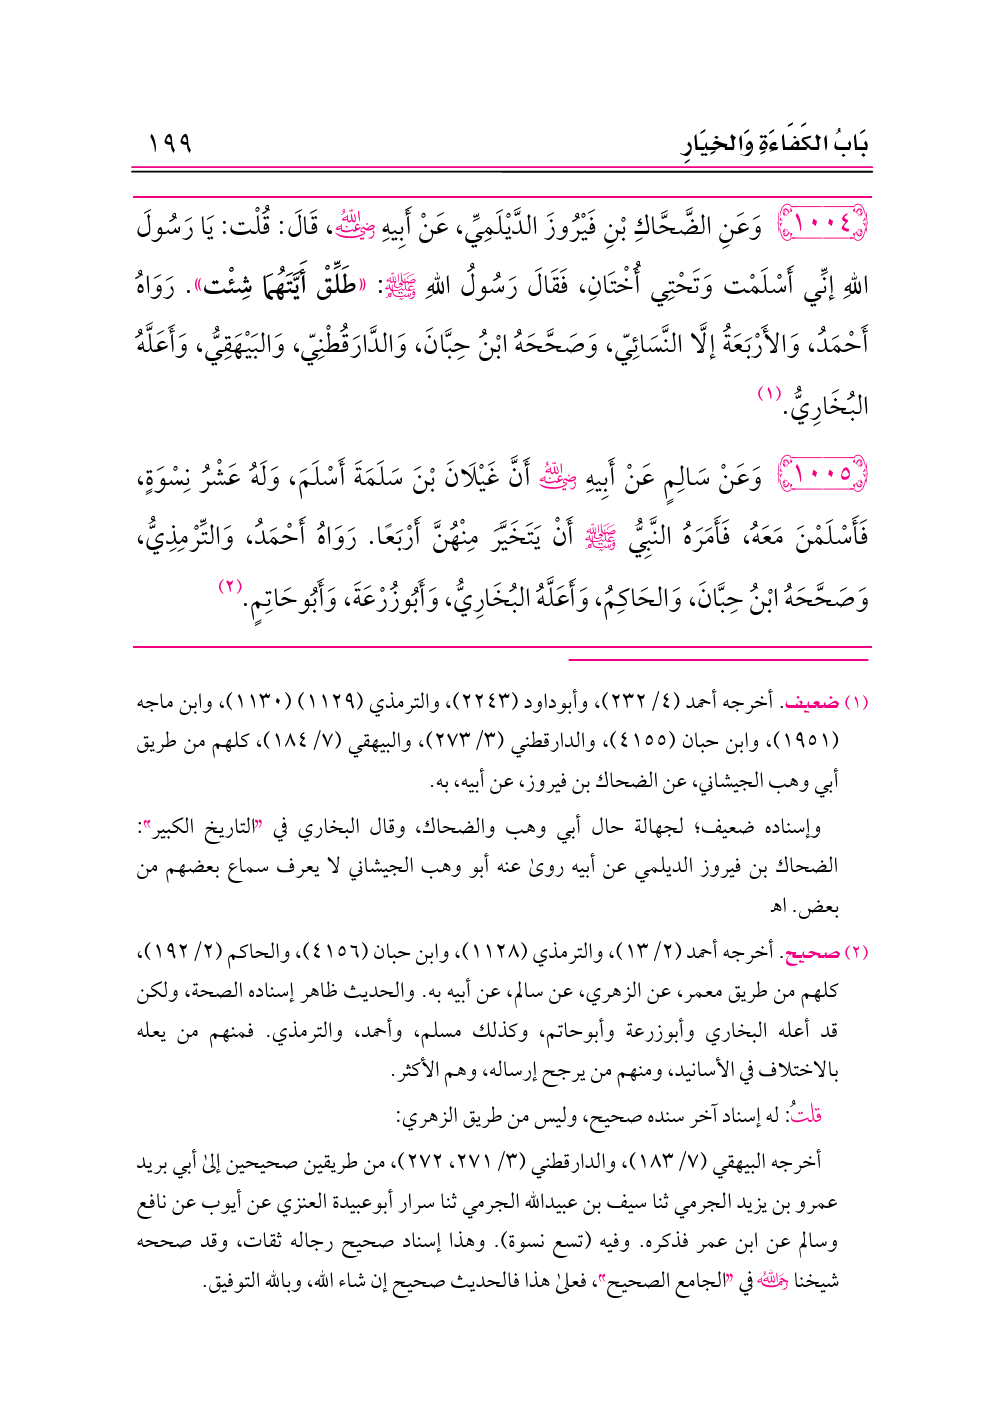 بَابُ الكَفَاءَةِ وَالخِيَارِ ١٩٩
١٠٠٤ وَعَنِ الضَّحَّاكِ بْنِ فَيْرُوزَ الدَّيْلَمِيِّ، عَنْ أَبِيهِ رضي الله عنه، قَالَ: قُلْت: يَا رَسُولَ
اللهِ إنِّي أَسْلَمْت وَتَحْتِي أُخْتَانِ، فَقَالَ رَسُولُ اللهِ ﷺ: «طَلِّقْ أَيَّتَهُمَا شِئْت». رَوَاهُ
أَحْمَدُ، وَالأَرْبَعَةُ إلَّا النَّسَائِيّ، وَصَحَّحَهُ ابْنُ حِبَّانَ، وَالدَّارَقُطْنِيّ، وَالبَيْهَقِيُّ، وَأَعَلَّهُ
البُخَارِيُّ.(١)
١٠٠٥ وَعَنْ سَالِمٍ عَنْ أَبِيهِ رضي الله عنه أَنَّ غَيْلَانَ بْنَ سَلَمَةَ أَسْلَمَ، وَلَهُ عَشْرُ نِسْوَةٍ،
فَأَسْلَمْنَ مَعَهُ، فَأَمَرَهُ النَّبِيُّ ﷺ أَنْ يَتَخَيَّرَ مِنْهُنَّ أَرْبَعًا. رَوَاهُ أَحْمَدُ، وَالتِّرْمِذِيُّ،
وَصَحَّحَهُ ابْنُ حِبَّانَ، وَالحَاكِمُ، وَأَعَلَّهُ البُخَارِيُّ، وَأَبُوزُرْعَةَ، وَأَبُوحَاتِمٍ.(٢)
(١) ضعيف. أخرجه أحمد (٤/ ٢٣٢)، وأبوداود (٢٢٤٣)، والترمذي (١١٢٩) (١١٣٠)، وابن ماجه
(١٩٥١)، وابن حبان (٤١٥٥)، والدارقطني (٣/ ٢٧٣)، والبيهقي (٧/ ١٨٤)، كلهم من طريق
أبي وهب الجيشاني، عن الضحاك بن فيروز، عن أبيه، به.
وإسناده ضعيف؛ لجهالة حال أبي وهب والضحاك، وقال البخاري في "التاريخ الكبير":
الضحاك بن فيروز الديلمي عن أبيه روىٰ عنه أبو وهب الجيشاني لا يعرف سماع بعضهم من
بعض. اهـ
(٢) صحيح. أخرجه أحمد (٢/ ١٣)، والترمذي (١١٢٨)، وابن حبان (٤١٥٦)، والحاكم (٢/ ١٩٢)،
كلهم من طريق معمر، عن الزهري، عن سالم، عن أبيه به. والحديث ظاهر إسناده الصحة، ولكن
قد أعله البخاري وأبوزرعة وأبوحاتم، وكذلك مسلم، وأحمد، والترمذي. فمنهم من يعله
بالاختلاف في الأسانيد، ومنهم من يرجح إرساله، وهم الأكثر.
قلتُ: له إسناد آخر سنده صحيح، وليس من طريق الزهري:
أخرجه البيهقي (٧/ ١٨٣)، والدارقطني (٣/ ٢٧١، ٢٧٢)، من طريقين صحيحين إلىٰ أبي بريد
عمرو بن يزيد الجرمي ثنا سيف بن عبيدالله الجرمي ثنا سرار أبوعبيدة العنزي عن أيوب عن نافع
وسالم عن ابن عمر فذكره. وفيه (تسع نسوة). وهذا إسناد صحيح رجاله ثقات، وقد صححه
شيخنا رحمه الله في "الجامع الصحيح"، فعلىٰ هذا فالحديث صحيح إن شاء الله، وبالله التوفيق.